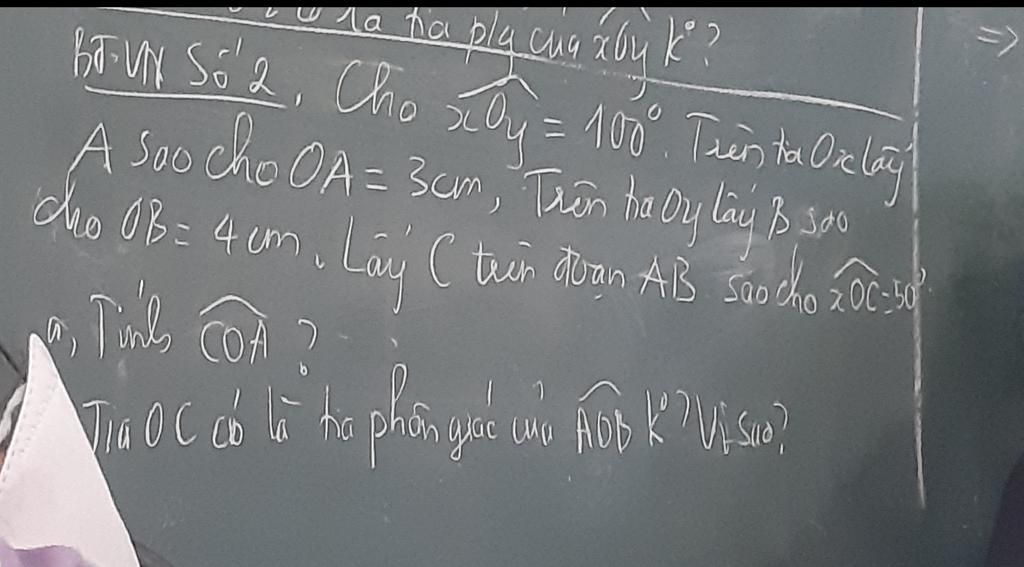 là tia p/g của xOy k°?
BTVN Số 2. Cho xOy = 100°. Trên tia Ox lấy
A sao cho OA = 3cm, Trên tia Oy lấy B sao
cho OB = 4cm. Lấy C trên đoạn AB sao cho xOC = 50°.
a, Tính COA?
Tia OC có là tia phân giác của AOB k°? Vì sao?
⇒